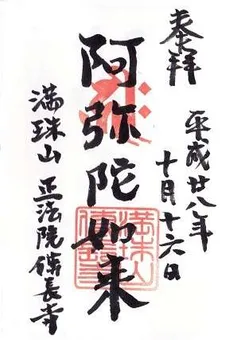 奉拝
平成廿八年
十月十六日
阿弥陀如来
満珠山 正法院傳長寺